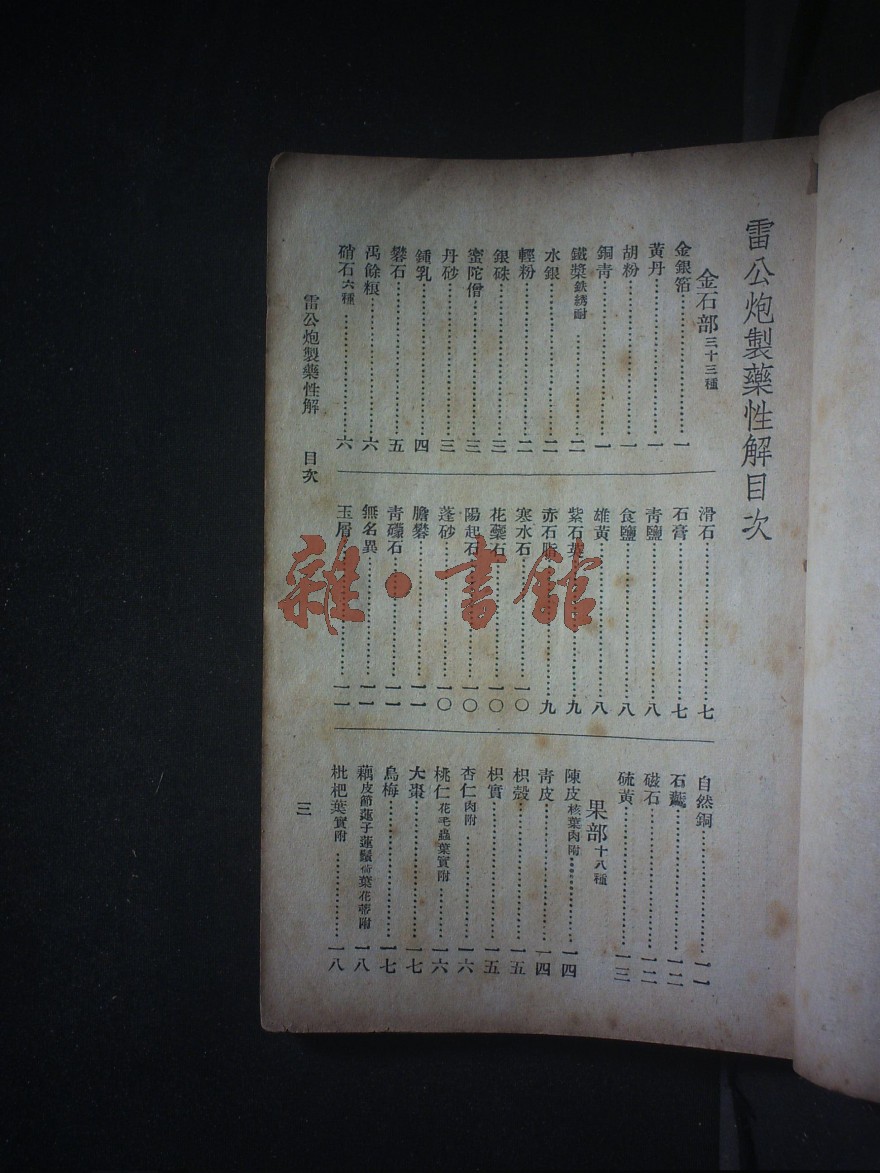 雷公炮製藥性解目次
金石部三十三種
金銀箔⋯⋯一
黃丹⋯⋯一
胡粉⋯⋯一
銅青⋯⋯一
鐵漿鉄綉附⋯⋯二
水銀⋯⋯二
輕粉⋯⋯二
銀硃⋯⋯三
蜜陀僧⋯⋯三
丹砂⋯⋯三
鍾乳⋯⋯四
礬石⋯⋯五
禹餘粮⋯⋯六
硝石六種⋯⋯六
滑石⋯⋯七
石膏⋯⋯七
青鹽⋯⋯八
食鹽⋯⋯八
雄黃⋯⋯八
紫石英⋯⋯九
赤石脂⋯⋯九
寒水石⋯⋯一〇
花蘂石⋯⋯一〇
陽起石⋯⋯一〇
蓬砂⋯⋯一〇
膽礬⋯⋯一一
青礞石⋯⋯一一
無名異⋯⋯一一
玉屑⋯⋯一一
自然銅⋯⋯一二
石⋯⋯一二
磁石⋯⋯一二
硫黃⋯⋯一三
果部十八種
陳皮核葉肉附⋯⋯一四
青皮⋯⋯一四
枳殼⋯⋯一五
枳實⋯⋯一五
杏仁肉附⋯⋯一六
桃仁花毛蟲葉實附⋯⋯一六
大棗⋯⋯一七
烏梅⋯⋯一七
藕皮節蓮子蓮鬚荷葉花蒂附⋯⋯一八
枇杷葉實附⋯⋯一八
雷公炮製藥性解 目次
三
雜·書館